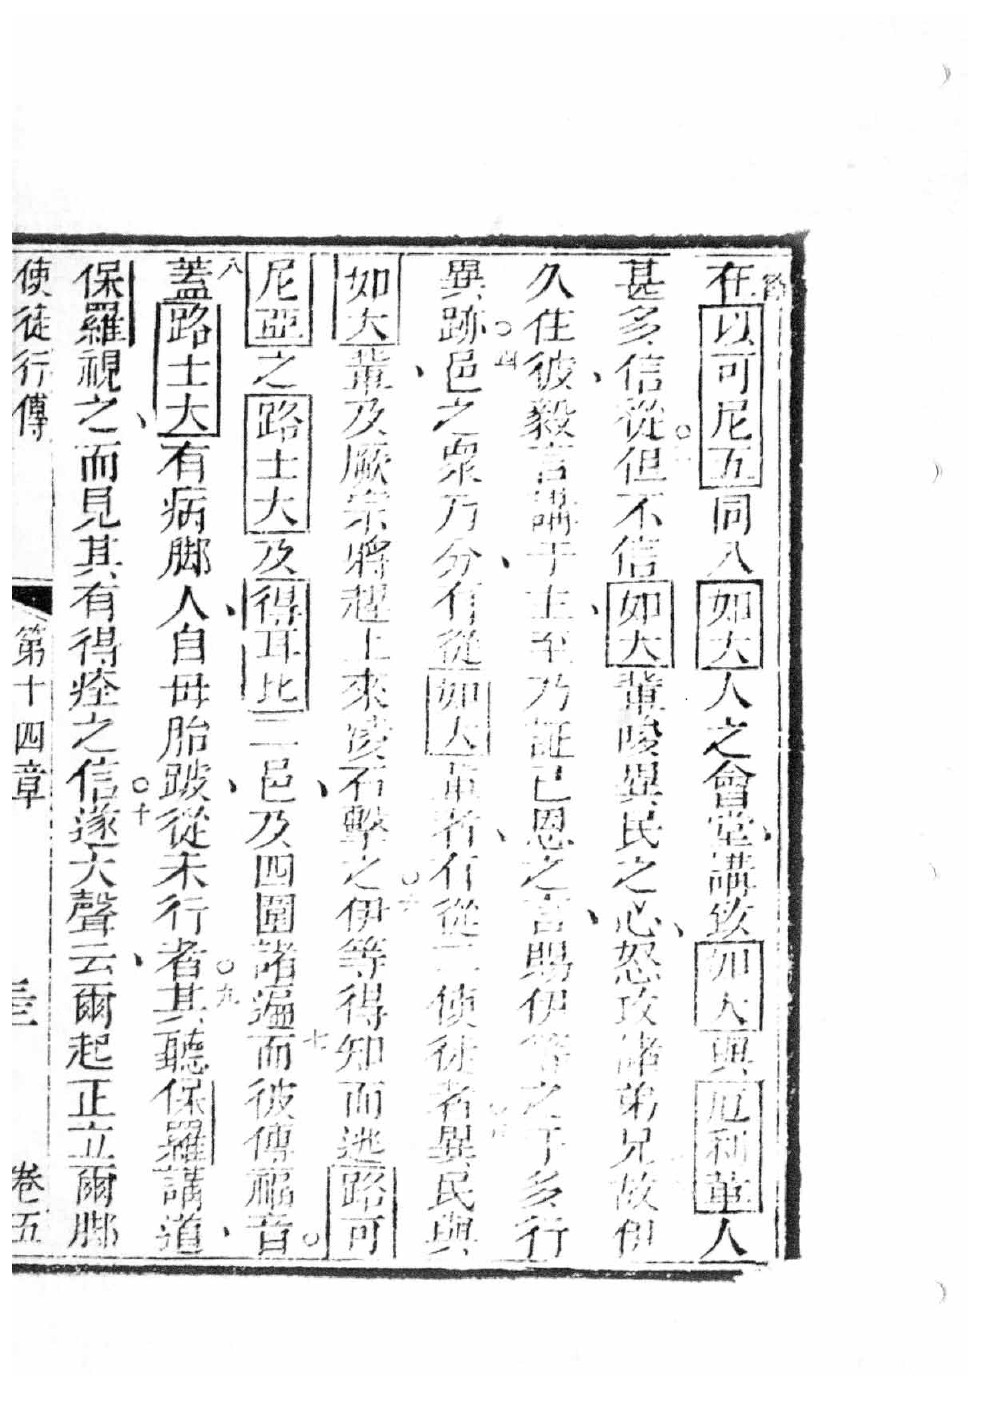 在以可尼五同入如大人之會堂講致如大與厄利革人
甚多信從但不信如大輩唆異民之心怒攻諸弟兄故伊
久住彼毅言講于主至乃証己恩之言賜伊等之手多行
異跡邑之眾乃分有從如大輩者有從二使徒者異民與
如大輩及厥宗將趕上來凌石擊之伊等得知而逃路可
尼亞之路士大及得耳比二邑及四圍諸處而彼傳福音
蓋路士大有病脚人自毋胎跛從未行者其聽保羅講道
保羅視之而見其有得痊之信遂大聲云爾起正立爾脚
使徒行傳 第十四章 三三 卷五